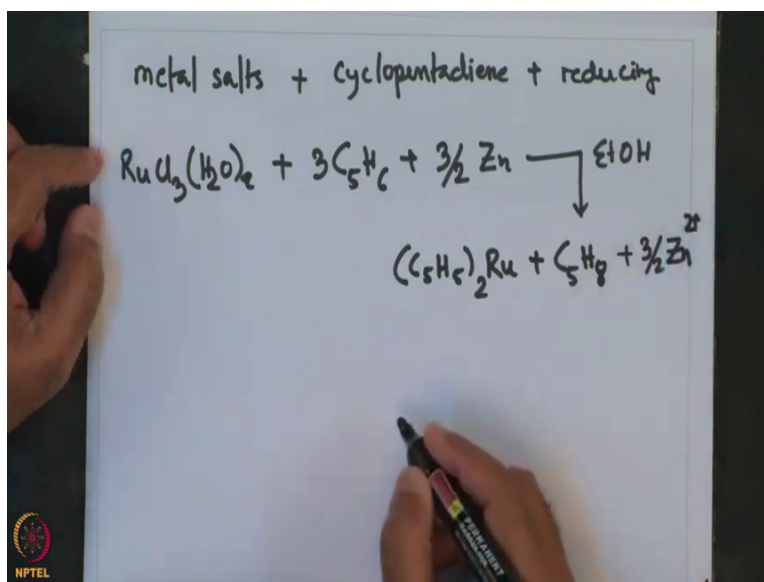 metal salts + Cyclopentadiene + reducing
RuCl₃(H₂O)ₓ + 3C₅H₆ + 3/2 Zn → EtOH
(C₅H₅)₂Ru + C₅H₈ + 3/2 Zn²⁺
PERMANENT
NPTEL